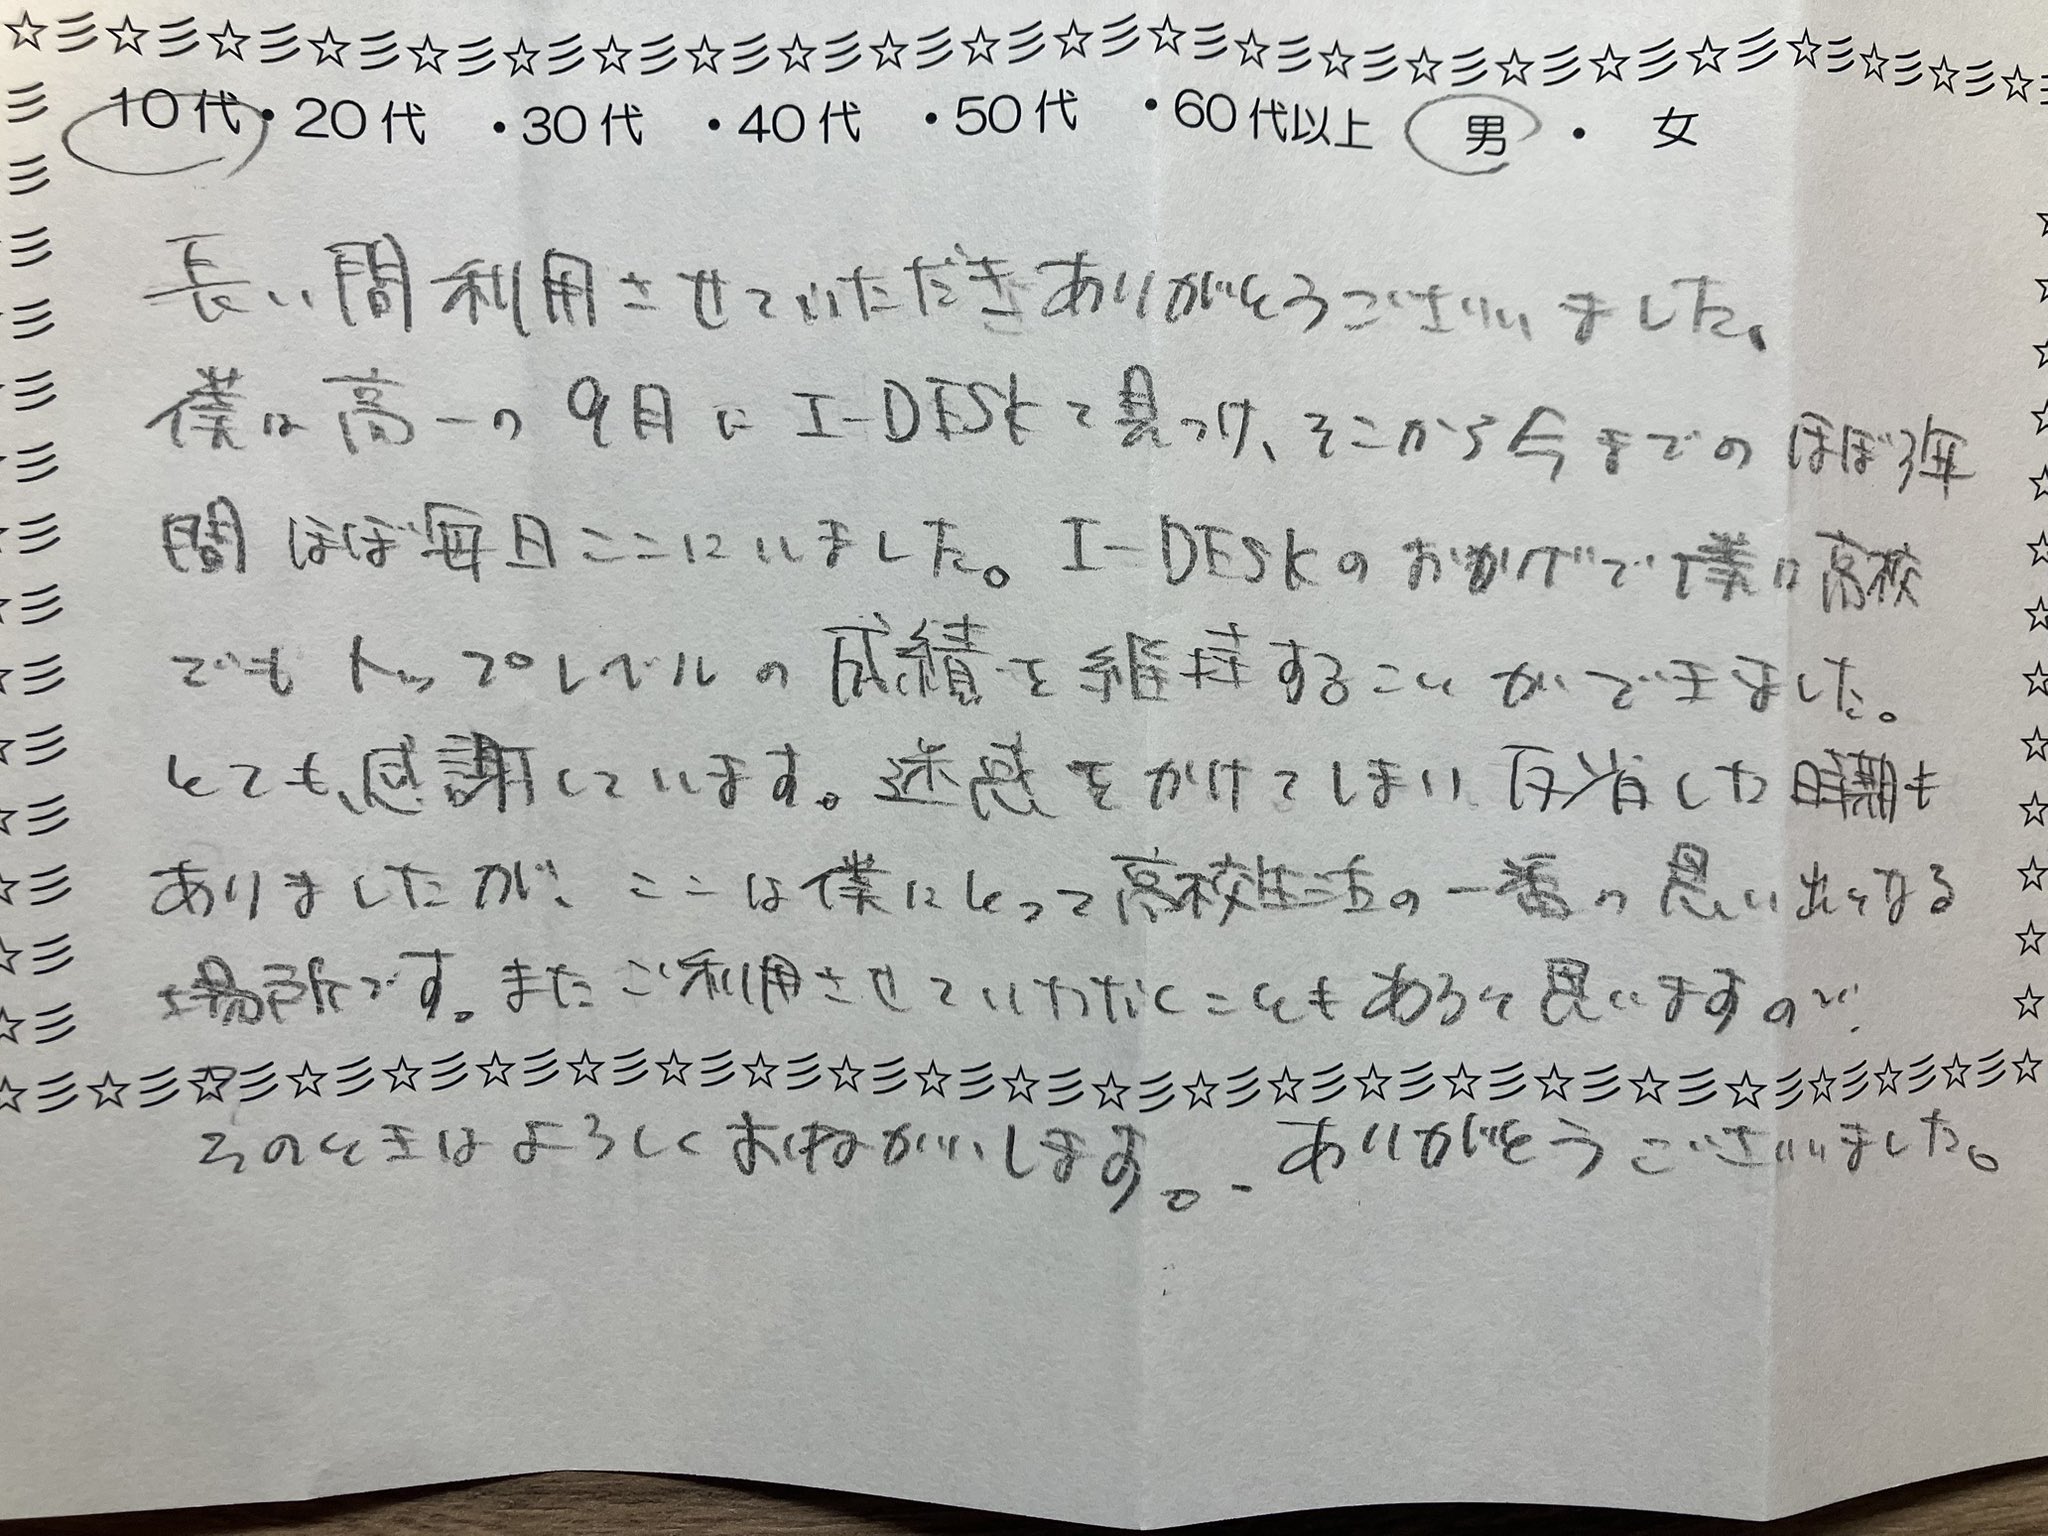 10代・20代・30代・40代・50代・60代以上 男・女
長い間利用させていただきありがとうございました、
僕は高一の9月にI-DESKて見つけ、そこから今までのほぼ3年
間ほぼ毎日ここにいました。I-DESKのおかげで僕は高校
でもトップレベルの成績を維持することができました。
とても、感謝しています。迷惑をかけてしまい反省した時期も
ありましたが、ここは僕にとって高校生活の一番の思い出となる
場所です。またご利用させていただくこともあると思いますので、
そのときはよろしくおねがいします。ありがとうございました。